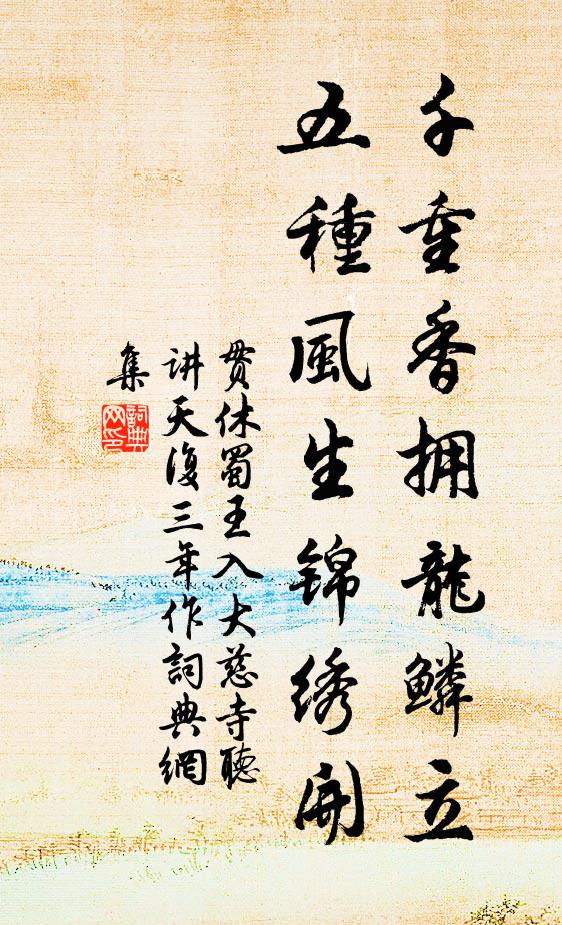 千重香拥龍鱗立
五種風生锦绣開
贯休蜀王入大慈寺聽
讲天復三年作詞典網
集
詞典
网印